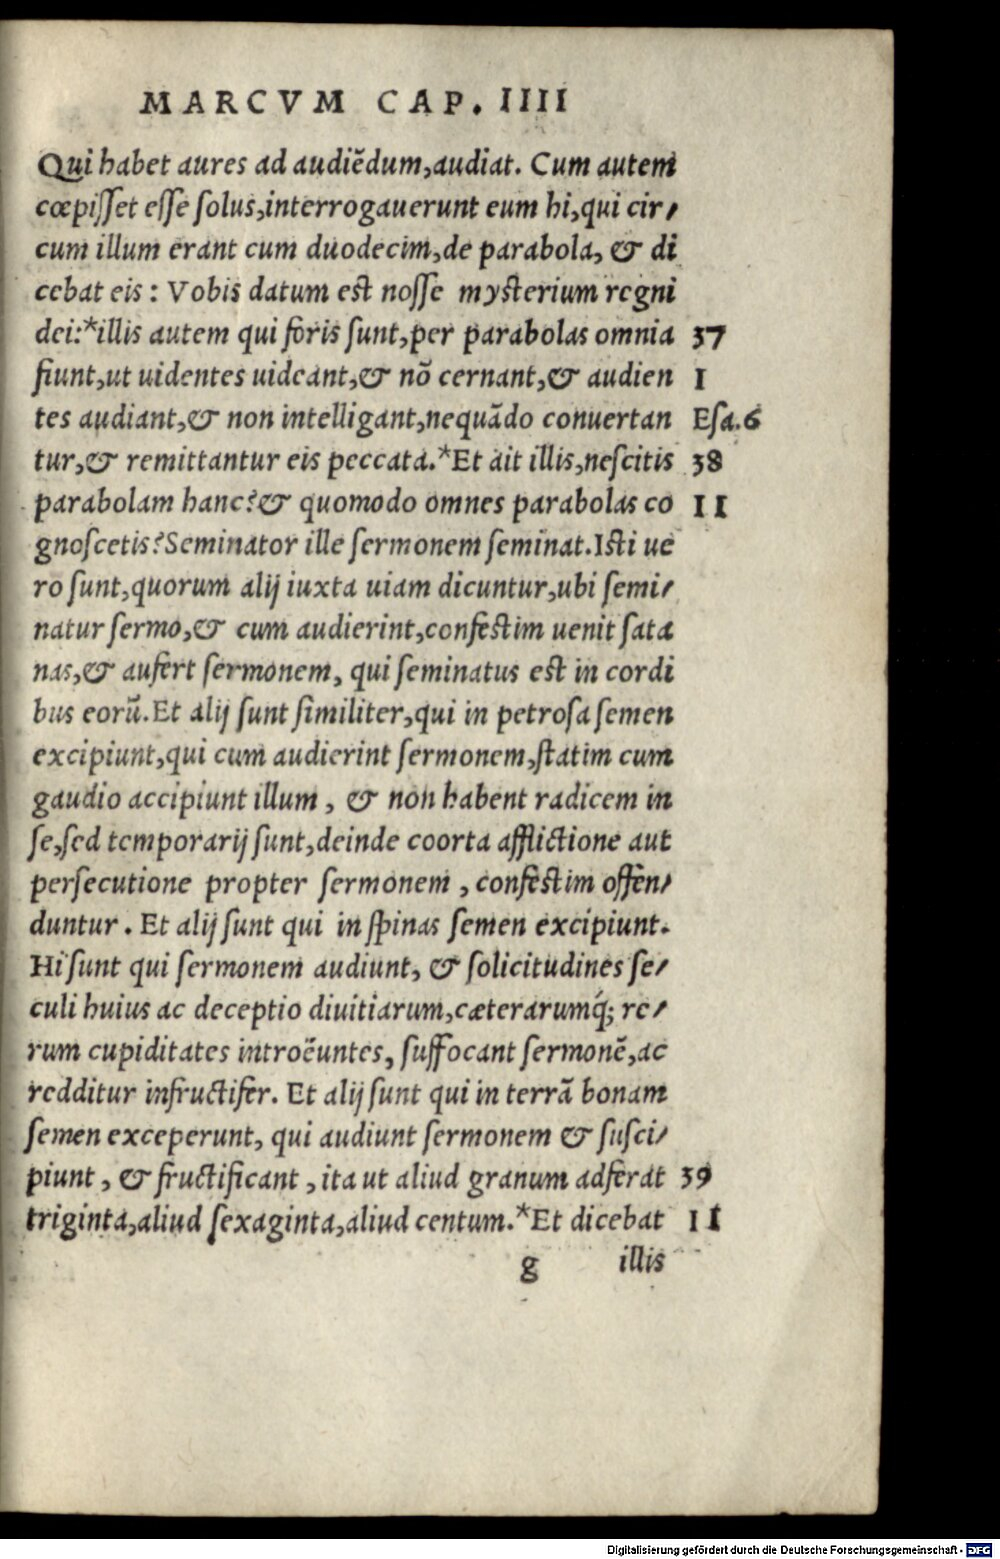 MARCVM CAP. IIII
Qui habet aures ad audiẽdum,audiat. Cum autem
cœpiſſet eſſe ſolus,interrogauerunt eum hi,qui cir⸗
cum illum erant cum duodecim,de parabola, & di
cebat eis : Vobis datum eſt noſſe myſterium regni
dei:*illis autem qui foris ſunt,per parabolas omnia 37
fiunt,ut uidentes uideant,& nõ cernant,& audien I
tes audiant,& non intelligant,nequãdo conuertan Eſa.6
tur,& remittantur eis peccata.*Et ait illis,neſcitis 38
parabolam hanc?& quomodo omnes parabolas co II
gnoſcetis?Seminator ille ſermonem ſeminat.Iſti ue
ro ſunt,quorum alij iuxta uiam dicuntur,ubi ſemi⸗
natur ſermo,& cum audierint,confeſtim uenit ſata
nas,& aufert ſermonem, qui ſeminatus eſt in cordi
bus eorũ.Et alij ſunt ſimiliter,qui in petroſa ſemen
excipiunt,qui cum audierint ſermonem,ſtatim cum
gaudio accipiunt illum , & non habent radicem in
ſe,ſed temporarij ſunt,deinde coorta afflictione aut
perſecutione propter ſermonem , confeſtim offen⸗
duntur . Et alij ſunt qui in ſpinas ſemen excipiunt.
Hi ſunt qui ſermonem audiunt, & ſolicitudines ſe⸗
culi huius ac deceptio diuitiarum,cæterarumq́; re⸗
rum cupiditates introëuntes, ſuffocant ſermonẽ,ac
redditur infructifer. Et alij ſunt qui in terrã bonam
ſemen exceperunt, qui audiunt ſermonem & ſuſci⸗
piunt , & fructificant , ita ut aliud granum adferat 39
triginta,aliud ſexaginta,aliud centum.*Et dicebat II
g illis
Digitalisierung gefördert durch die Deutsche Forschungsgemeinschaft - DFG